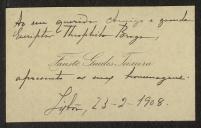 Ao seu querido Amigo e grande
Escriptor Theophilo Braga,
Fausto Guedes Teixeira
apresenta as suas homenagens.
Lisboa, 23-2-1908.